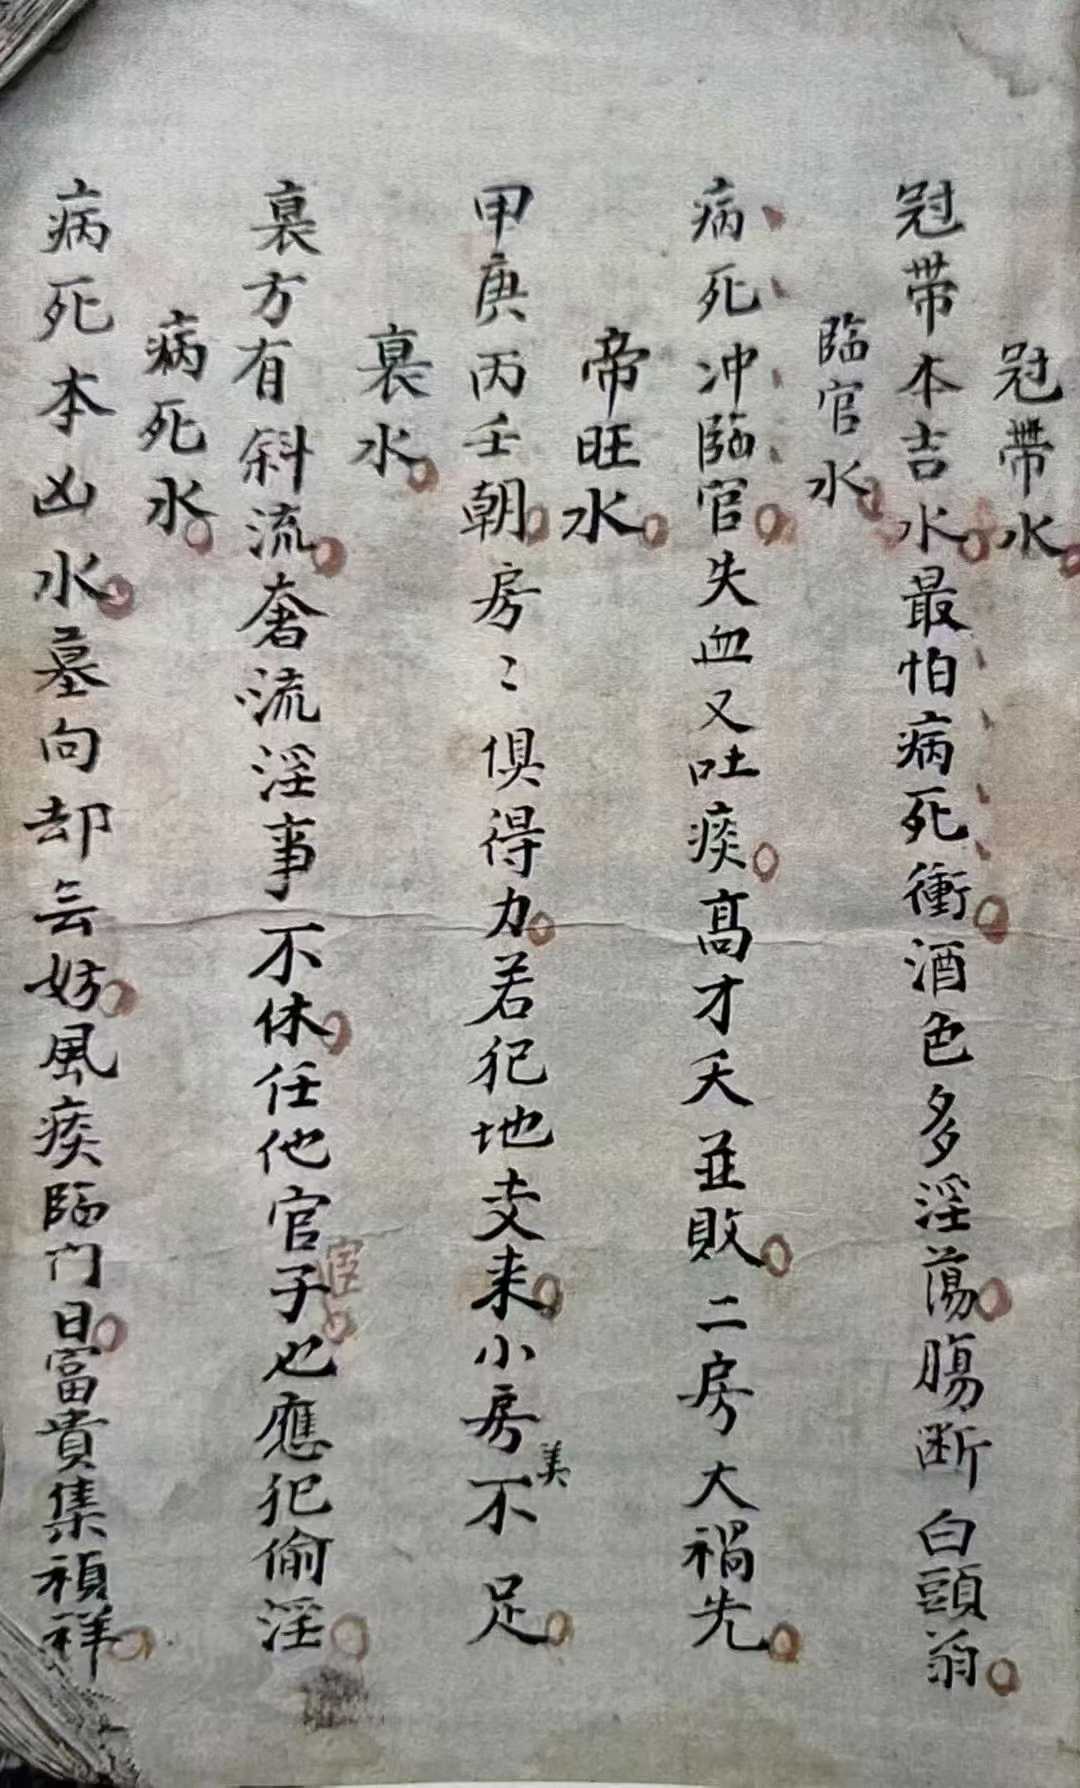 冠帶水
冠带本吉水最怕病死衝酒色多淫蕩腸断白頭翁
臨官水
病死冲臨官失血又吐痰髙才夭並敗二房大禍先
帝旺水
甲庚丙壬朝房〻俱得力若犯地支来小房不美足
衰水
衰方有斜流奢流淫事不休任他官子也應犯偷淫
病死水
病死本凶水墓向却云妨風痰臨门日富貴集禎祥